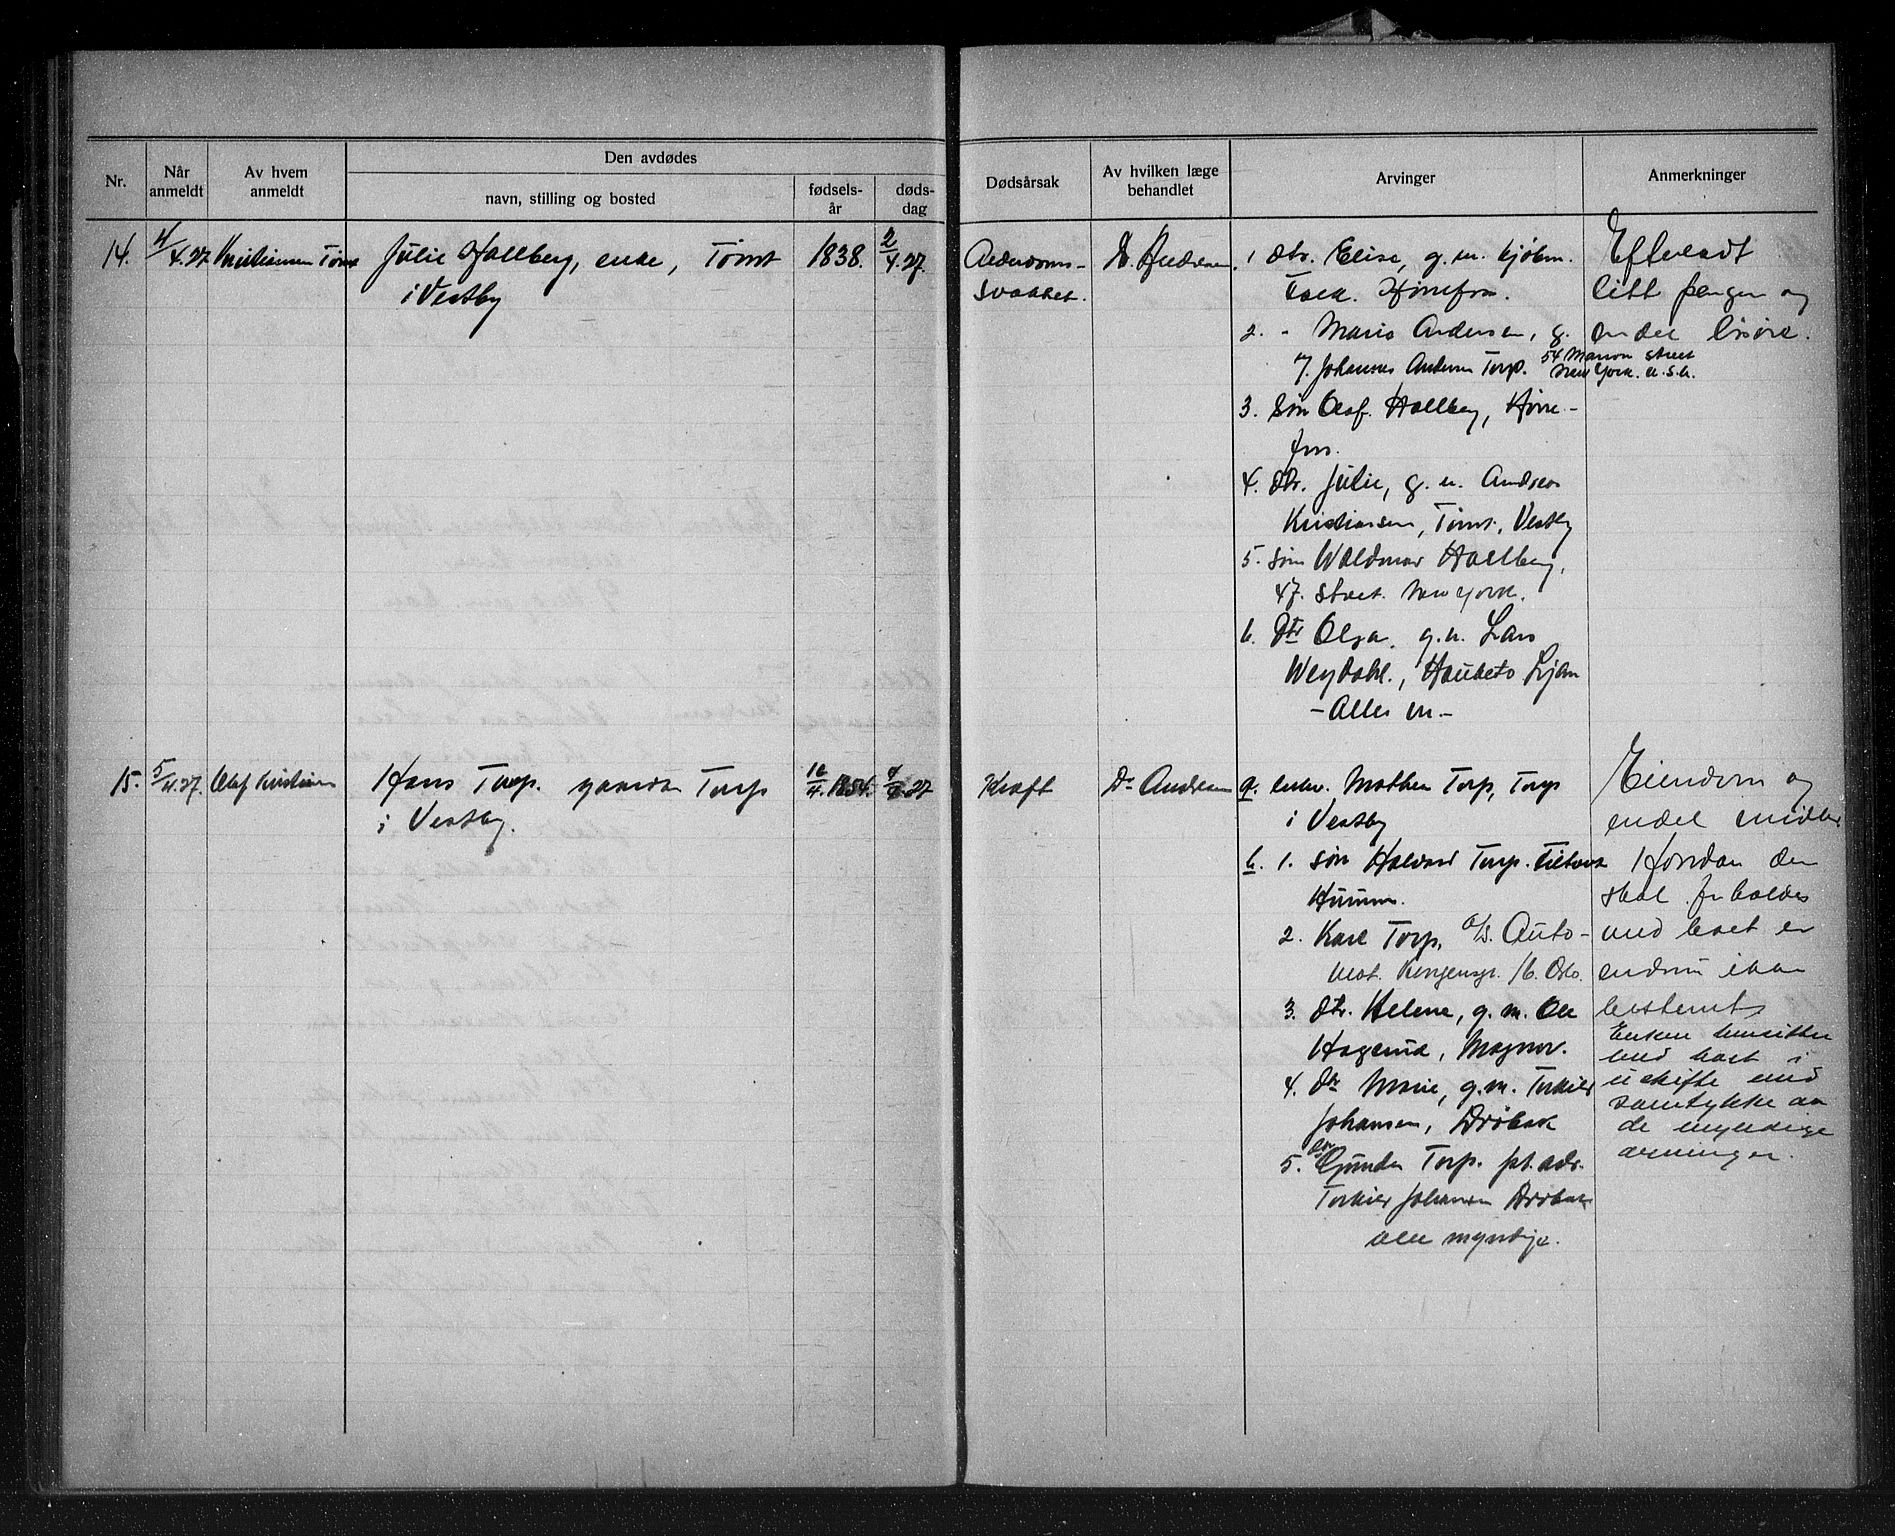 Nr.
Når anmeldt
Av hvem anmeldt
Den avdødes
navn, stilling og bosted
fødsels-år
døds-dag
Dødsårsak
Av hvilken læge behandlet
Arvinger
Anmerkninger
14. 4/4.27 Kristiansen Tømt
Julie Hallberg, enke, Tømt
i Vestby
1838. 2/4.27.
Alderdoms-
svakhet.
Dr. Andresen.
1 dtr. Elise, g. m. kjøbm.
Hønefos.
2. - Marie Andersen, g.
7. Johannes Andersen Torp. 54 Marion Street
New York. U.S.A.
3. Søn Olaf Hallberg, Høne-
fos.
4. dtr. Julie, g. m. Andreas
Kristiansen, Tømt, Vestby
5. søn Waldmar Hallberg,
47. Street. New York.
6. Dtr Olga, g. m. Lars
Weydahl, Hauketo Ljan
- Alle m. -
Efterladt
litt penger og
endel løsøre.
15. 5/4.27. Olaf Kristiansen
Hans Torp. gaardbr Torp
i Vestby.
10/4.1854. 4/4 27
Kræft
Dr Andresen
a. enke. Mathea Torp, Torp
i Vestby
b. 1. søn Halvard Torp. Tilhørst
Hurum.
2. Karl Torp, A/S. Auto-
Kongensgt. 16. Oslo.
3. dtr. Helene, g. m. Ole
Hagerud, Magnor.
4. Dtr Marie, g. m. Torkild
Johansen, Drøbak
5. dtr Gunda Torp. pt. adr.
Torkild Johansen Drøbak
alle myndige.
Eiendom og
endel midler
Hvordan der
skal forholdes
med boet er
endnu ikke
bestemt
Enken hensitter
med boet i
uskifte med
samtykke av
de myndige
arvinger.